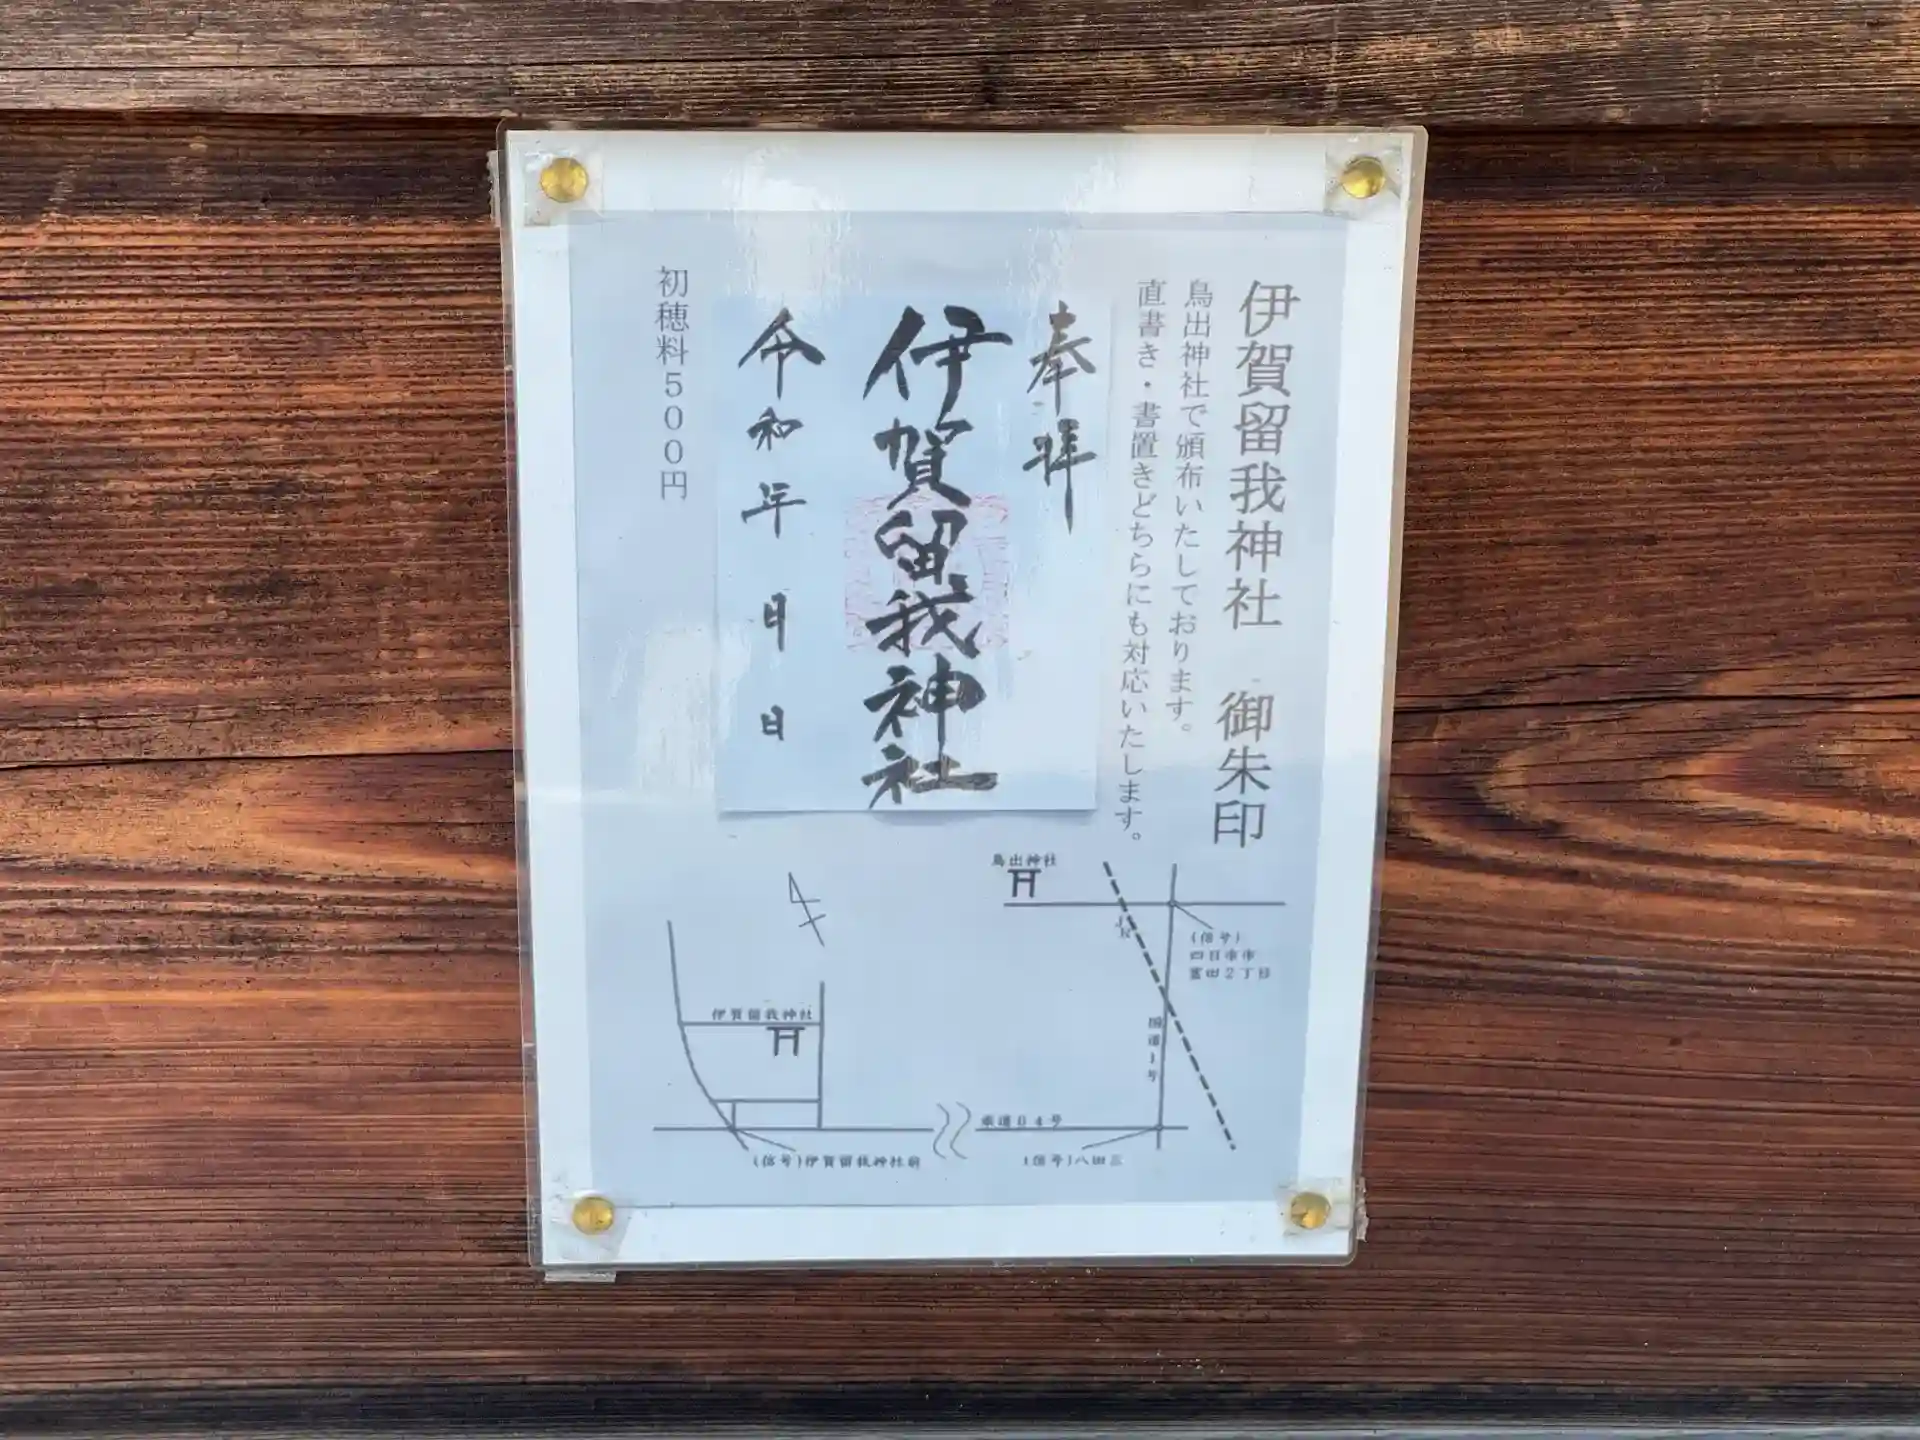 伊賀留我神社　御朱印
鳥出神社で頒布いたしております。
直書き・書置きどちらにも対応いたします。
奉拝
伊賀留我神社
令和 年 月 日
初穂料500円
鳥出神社
JR
(信号)
四日市市
富田2丁目
国道1号
伊賀留我神社
県道64号
(信号)伊賀留我神社前
(信号)八田三